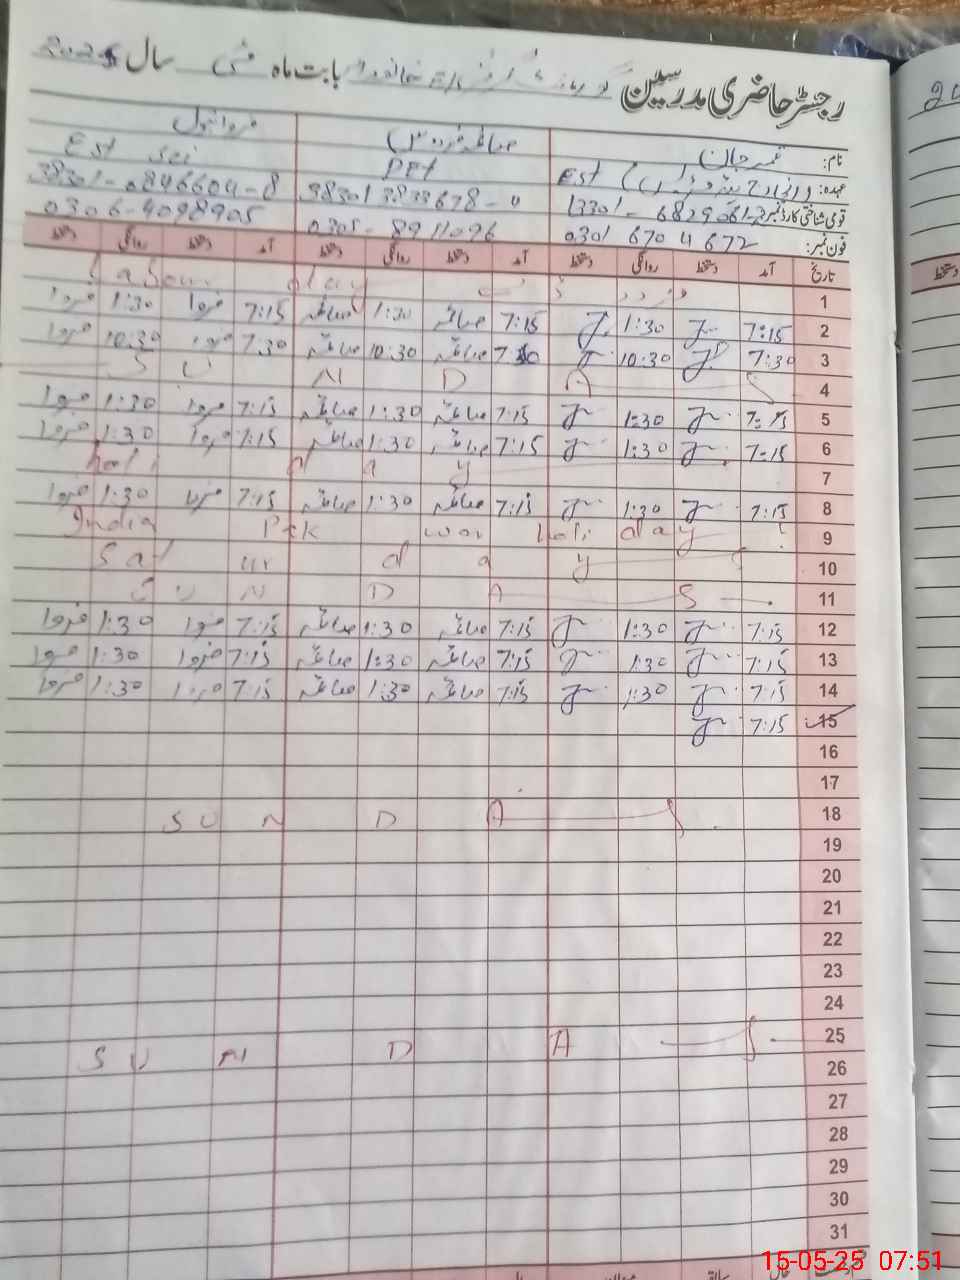 رجسٹر حاضری مدرسین بابت ماہ مئی سال 2025
نام: قمر جان صائمہ فردوس فروا بتول
عہدہ: Est PET Est sci
قومی شناختی کارڈ نمبر: 13301-6829061-2 38301 3833678-0 38301-0846604-8
فون نمبر: 0301 670 4 672 0305-8911096 0306-4098905
تاریخ آمد دستخط روانگی دستخط آمد دستخط روانگی دستخط آمد دستخط روانگی دستخط
1 Labour day
2 7:15 1:30 7:15 صائمہ 1:30 صائمہ 7:15 فروا 1:30 فروا
3 7:30 10:30 7:30 صائمہ 10:30 صائمہ 7:30 فروا 10:30 فروا
4 S U N D A Y
5 7:15 1:30 7:15 صائمہ 1:30 صائمہ 7:15 فروا 1:30 فروا
6 7:15 1:30 7:15 صائمہ 1:30 صائمہ 7:15 فروا 1:30 فروا
7 holi d a y
8 7:15 1:30 7:15 صائمہ 1:30 صائمہ 7:15 فروا 1:30 فروا
9 India Pak war holi day
10 Sat ur d a y
11 S U N D A Y
12 7:15 1:30 7:15 صائمہ 1:30 صائمہ 7:15 فروا 1:30 فروا
13 7:15 1:30 7:15 صائمہ 1:30 صائمہ 7:15 فروا 1:30 فروا
14 7:15 1:30 7:15 صائمہ 1:30 صائمہ 7:15 فروا 1:30 فروا
15 7:15
16
17
18 S U N D A Y
19
20
21
22
23
24
25 S U N D A Y
26
27
28
29
30
31
15-05-25 07:51